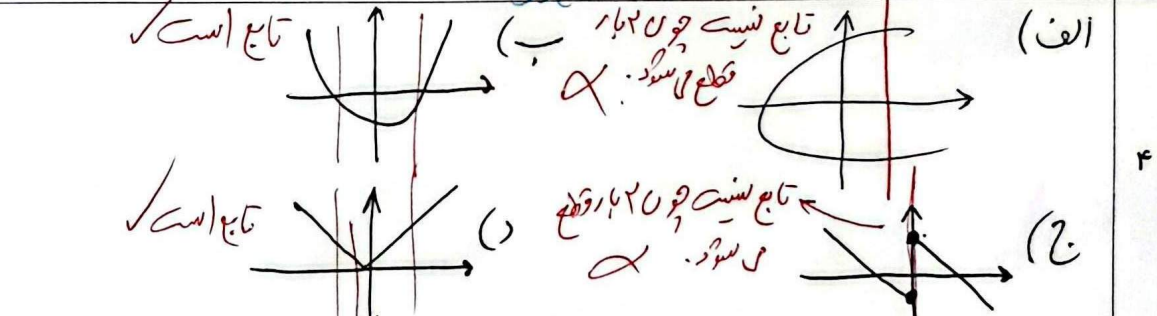 الف)
تابع نیست چون ۲ بار
قطع می‌شود.
ب)
تابع است
۴
ج)
تابع نیست چون ۲ بار قطع
می‌شود.
د)
تابع است